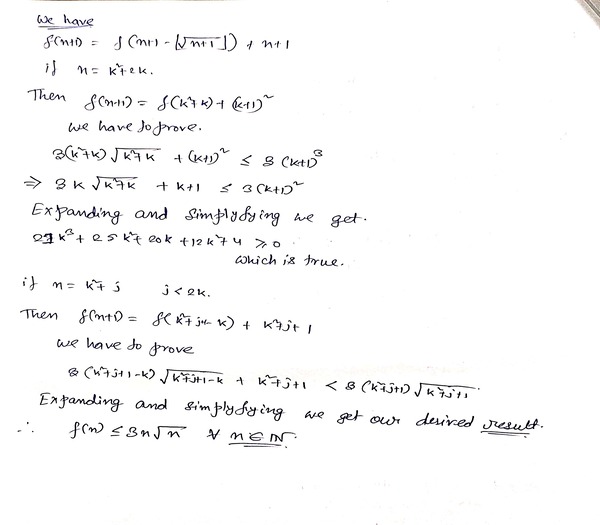 We have
f(n+1) = f(n+1 - ⌊√n+1⌋) + n+1
if n = k²+2k.
Then f(n+1) = f(k²+k) + (k+1)²
we have to prove.
3(k²+k) √k²+k + (k+1)² ≤ 3 (k+1)³
⇒ 3k √k²+k + k+1 ≤ 3(k+1)²
Expanding and simplyfying we get.
k³ + 25k² + 20k + 12k² + 4 ≥ 0
which is true.
if n = k² + j j < 2k.
Then f(n+1) = f(k²+j+1-k) + k²+j+1
we have to prove
3 (k²+j+1-k) √k²+j+1-k + k²+j+1 < 3 (k²+j+1) √k²+j+1.
Expanding and simplyfying we get our desired result.
∴ f(n) ≤ 3n√n ∀ n ∈ ℕ.